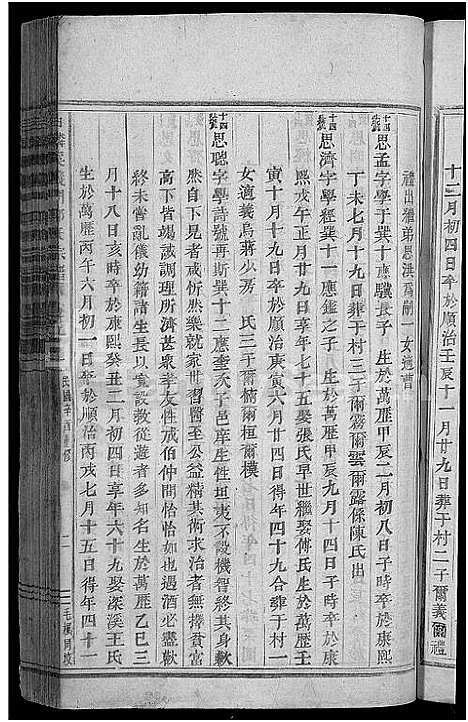 十二月初四日卒於順治壬辰十一月廿九日葬于村二子爾義爾禮
禮出繼弟思洪為嗣一女適曹
十四
思孟字學于巽十應驥長子生於萬曆甲辰二月初八日子時卒於康熙
丁未七月十九日葬于村三子爾霧爾雲爾露係陳氏出
十四
思濟字學經巽十一應鑑之子生於萬曆甲辰九月十四日子時卒於康
熙戊午正月廿九日享年七十五娶張氏早世繼娶傅氏生於萬曆壬
寅十月十九日卒於順治庚寅六月廿四日得年四十九合葬于村一
女適義烏蔣少房 氏三子爾楠爾桓爾樸
十四
思聰字學詩號再斯巽十二應奎次子邑庠生性坦夷不設機智終其身歉
然自下見者戒忻忻然樂就家世習醫至公益精其術求治者無擇貧富
高下皆竭誠調理所濟甚衆孝友性成伯仲間怡怡如也遇酒必盡歡
終未嘗亂儀幼籍諸生長以賞設教從遊者多知名生於萬曆乙巳三
月十八日亥時卒於康熙癸丑二月初四日享年六十九娶深溪王氏
生於萬曆丙午六月初一日卒於順治丙戌七月十五日得年四十一